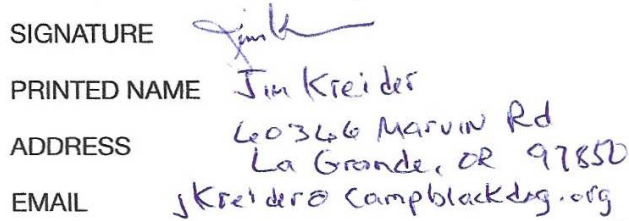 SIGNATURE
PRINTED NAME Jim Kreider
ADDRESS 60366 Marvin Rd
La Grande, OR 97850
EMAIL jkreider@campblackdog.org